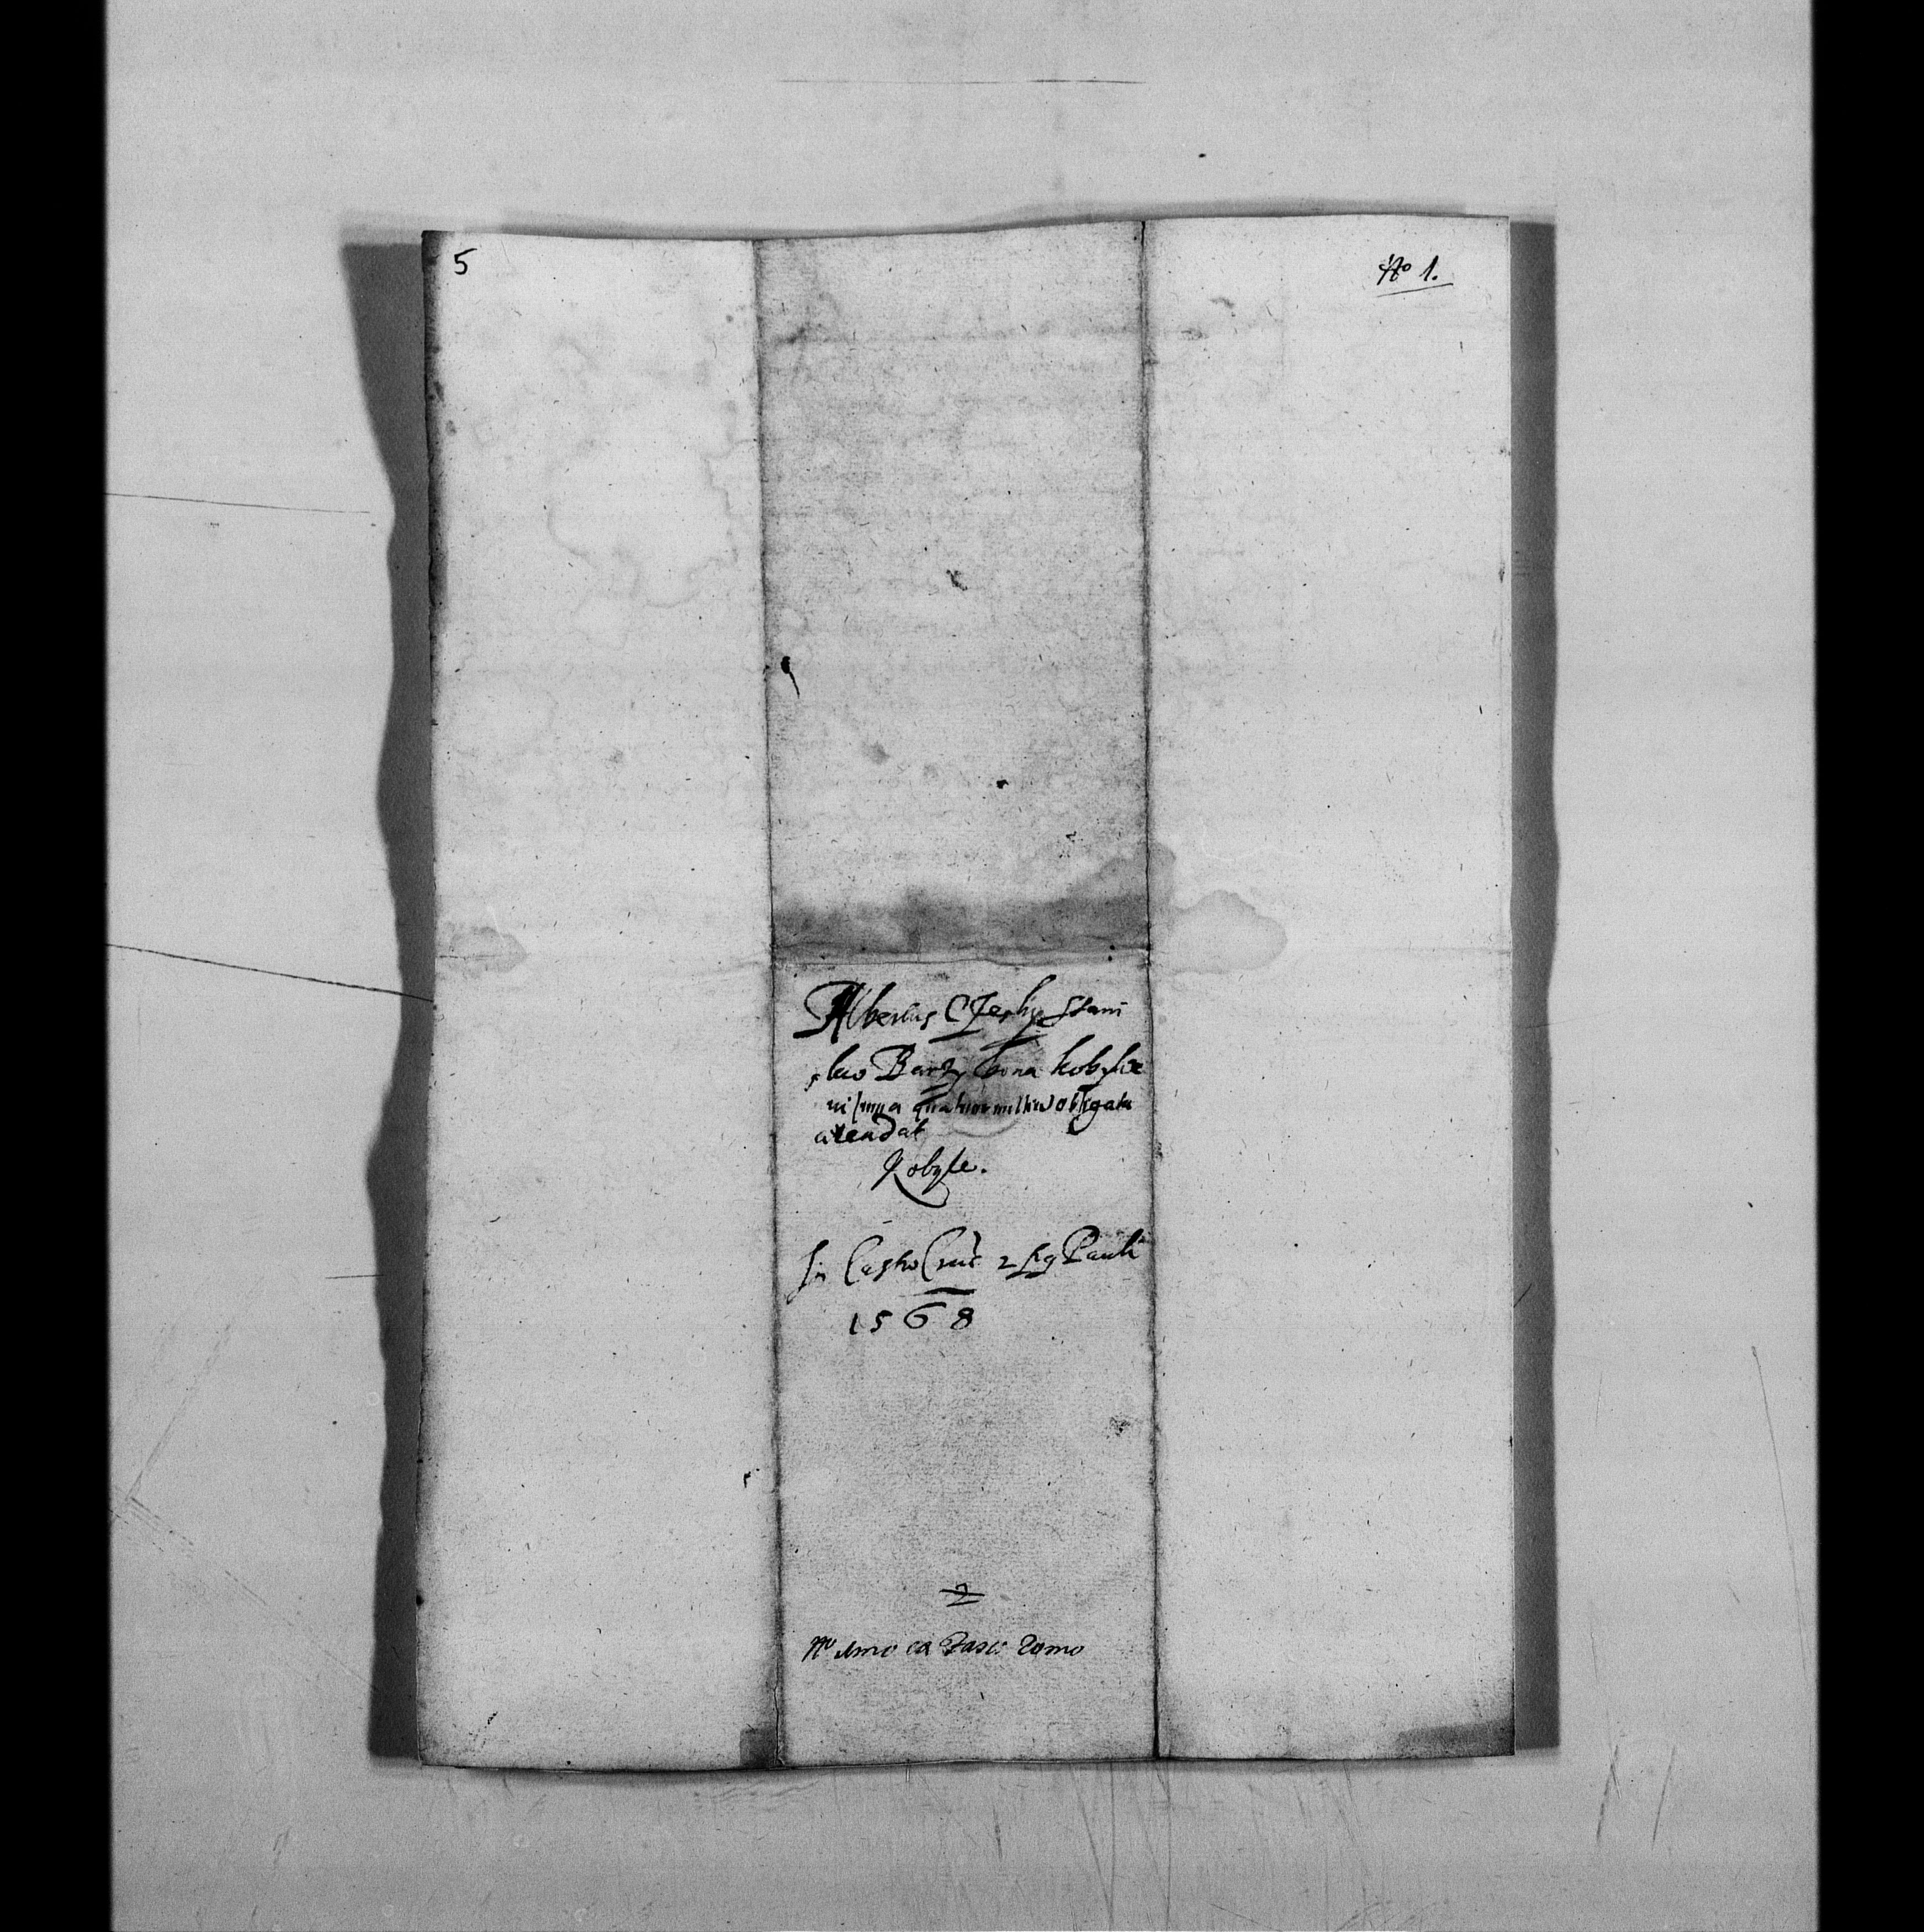 5
No 1.
Albertus Czeski Stani
slao Barzy bona Kobyle
in summa quatuor millium obligata
arendat
Kobyle.
In Castro Crac 2 Pauli
1568
2
No